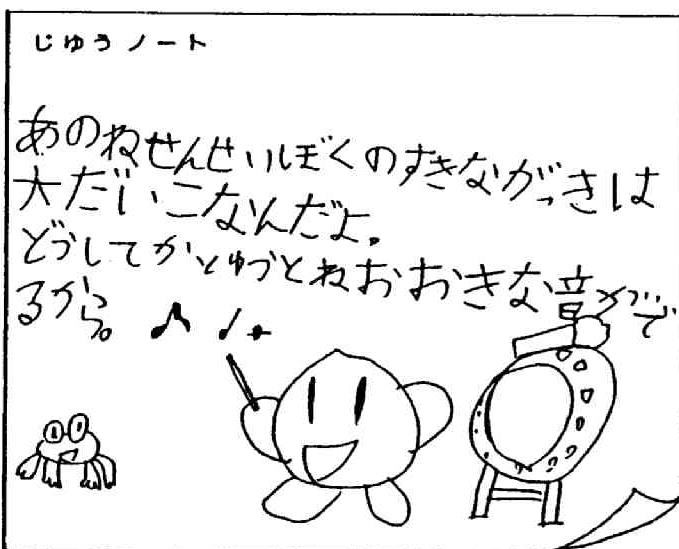 じゆうノート
あのねせんせいぼくのすきながっきは
大だいこなんだよ。
どうしてかとゆうとねおおきな音がで
るから。